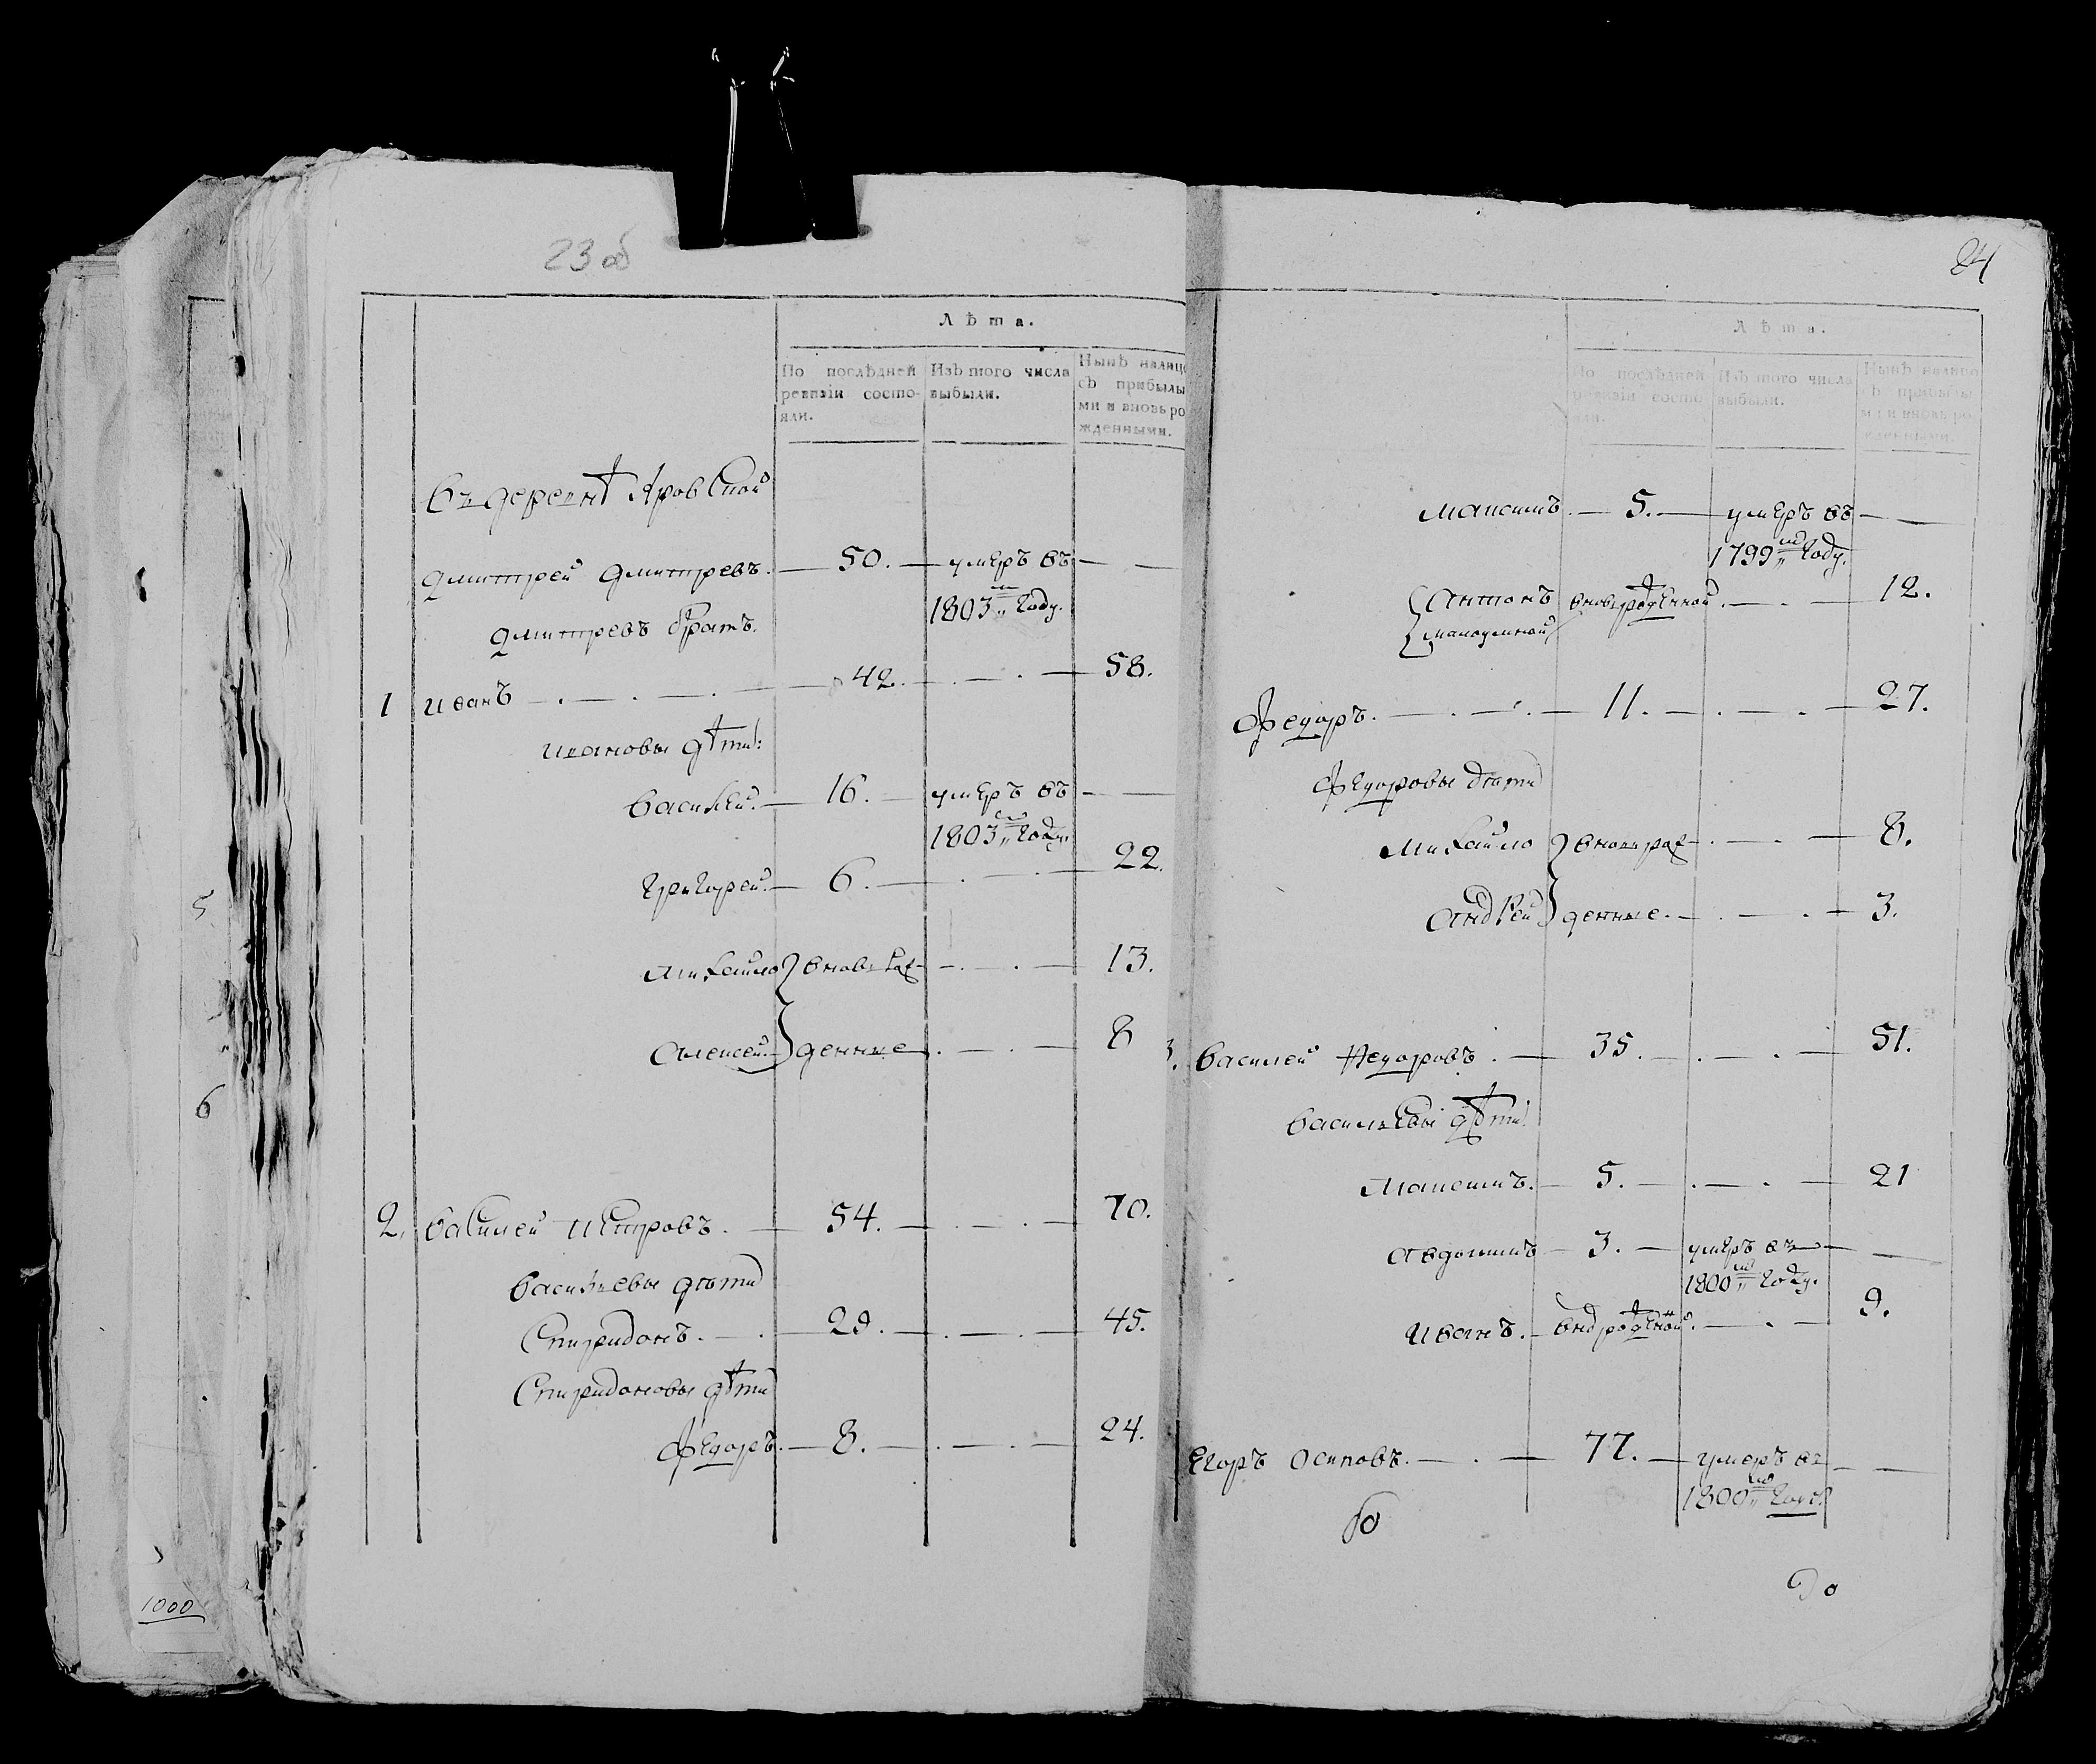 23 об
Лѣта.
По послѣдней ревизіи состояли.
Изъ того числа выбыли.
Нынѣ налицо съ прибылыми и вновь рожденными.
Въ деревнѣ Яровской
Дмитрей Дмитревъ. — 50. — умеръ въ — —
1803мъ году.
Дмитревъ братъ.
1 Иванъ — . — . — . — 42. — . — 58.
Ивановы дѣти:
Василей. — 16. — умеръ въ — —
1803мъ году.
Григорей. — 6. — . — 22.
Михайло } вновь рож- — . — 13.
Алексей. } денные . — . — 8
2. Василей Петровъ. — 54. — . — . — 70.
Васильевы дѣти
Спиридонъ. — . — 29. — . — . — 45.
Спиридоновы дѣти
Федоръ. — 8. — . — . — 24.
5
6
1000
24
Лѣта.
По послѣдней ревизіи состояли.
Изъ того числа выбыли.
Нынѣ налицо съ прибылыми и вновь рожденными.
Максимъ. — 5. — умеръ въ — —
1799мъ году.
{ Антонъ вновьрожденной. — . — 12.
Федоръ. — . — . — 11. — . — . — 27.
Федоровы дѣти
Михайло } вновь рож- . — . — 8.
Андрей } денные. — . — . — 3.
3. Василей Федоровъ. — 35. — . — . — 51.
Васильевы дѣти
Максимъ. — 5. — . — . — 21
Авдокимъ — 3. — умеръ въ — —
1800мъ году.
Иванъ. — внорожденной. — . — 9.
Егоръ Осиповъ. — . — 77. — умеръ въ — —
1800мъ году.